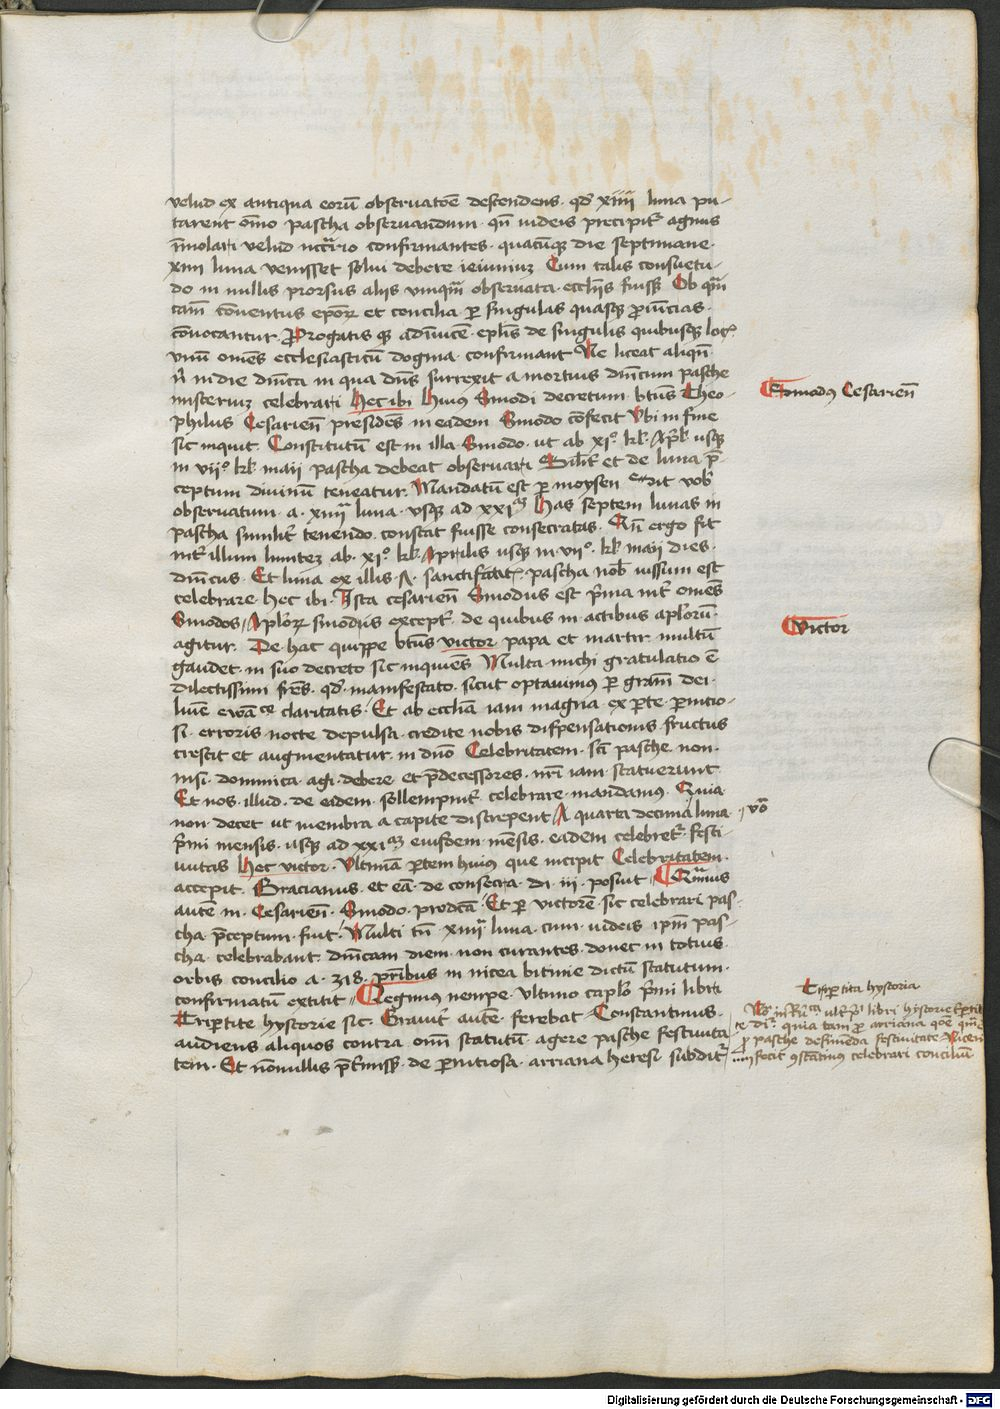 velud ex antiqua eorū observatōe descendens · qd' xiiii luna pu-
tarent om̄o pascha observandum · qn̄ iudeis precipit̄ agnus
īmolari velud nccr̄io confirmantes · quacūqꝫ die septimane ·
xiiii luna venisset solui debere ieiuniuꝫ Cum talis consuetu-
do in nullis prorsus aliis vmqm̄ observata · eccl'iis fuissꝫ Ob qm̄
cām cōuentus ep̄oꝝ et concilia ꝑ singulas quasqꝫ ꝓuīcias ·
cōuocantur · Progatis qꝫ adīuicē · epl'is de singulis quibusqꝫ loc̄
vnū om̄es ecclesiasticū dogma · confirmant Ne liceat aliqn̄
n̄ in die dn̄ica in qua dn̄s surrexit a mortuis dn̄icum pasche
misteriuꝫ celebrari Hec ibi Huius Sinodi decretum · btūs Theo-
philus Cesarien̄ presidēs in eadem Sinodo cōfecit Vbi in fine
sic inquit · Constitutū est in illa Sinodo · ut ab xi° · kl' · Ap̄l' · usqꝫ
in vii° · kl' maii pascha debeat observari Silit̄ et de luna p̄-
ceptum diuinū teneatur · Mandatū est ꝑ moysen dit vob'
observatum · a · xiiii luna · vsqꝫ ad xxi Has septem lunas in
pascha similit̄ tenendo · constat fuisse consecratas · Qn̄ ergo fit
int̄ illum limiteꝫ ab · xi° · kl' Aprilis usqꝫ in vii° · kl' maii dies ·
dn̄icus · Et luna ex illis · pascha nob' iussum est
celebrare · hec ibi · Ista cesarien̄ Sinodus est p̄ma int̄ om̄es
Sinodos Ap'loꝝ sinodus except̄ · de quibus in actibus ap'lorū ·
agitur · De hac quippe btūs victor · papa et martir · multū
gaudet · in suo decreto sic inquiēs Multa michi gratulatio ē
dilectissimi frēs · qd' · manifestato · sicut optauimus ꝑ gram̄ dei ·
claritatis · Et ab eccl'ia iam magna · ex ꝑte · ꝑnicio-
si · erroris nocte depulsa · credite nobis dispensationis · fructus
crescit et augmentatur · in dn̄o Celebritatem · sc̄i pasche · non ·
nisi · dominica · agi · debere · et p̄decessores · nr̄i iam · statuerunt
Et nos · illud · de eadem · sollempnit̄ · celebrare · mandamus · Quia
non · decet ut membra a capite discrepent A quarta decima luna · vō
p̄mi mensis · usqꝫ ad xxi eiusdem mēsis · eadem celebret̄ · festi-
uitas Hec victor · Vltimā ꝑtem huius que incipit Celebritatem ·
accepit · Gracianus · et eā · de consecra · di · iii · posuit Quāuis
autē in · Cesarien̄ · Sinodo · prodc̄a · Et ꝑ victorē · sic celebrari pas-
cha p̄ceptum · fuit · Multi tn̄ xiiii luna · cum · iudeis ip̄m pas-
cha · celebrabant · dn̄icam diem · non curantes · donec in totius ·
orbis concilio a · 318 · patribus in nicea bitinie dictū statutum ·
confirmatū extitit Legimus nempe · vltimo capl'o p̄mi libri
Tripertite hystorie sic · Grauit̄ autē · ferebat · Constantinus ·
audiens aliquos contra om̄i statutū agere pasche festiuita
tem · Et nōnullis p̄t̄missꝫ · de ꝑnitiosa · arriana heresi subdit̄
Sinodus Cesarien̄
Victor
Tripertita hystoria
libri hystorie
quia tam ꝓ arriana
ꝓ pasche definienda festiuitate Nicen
fecit celebrari conciliū
Digitalisierung gefördert durch die Deutsche Forschungsgemeinschaft - DFG